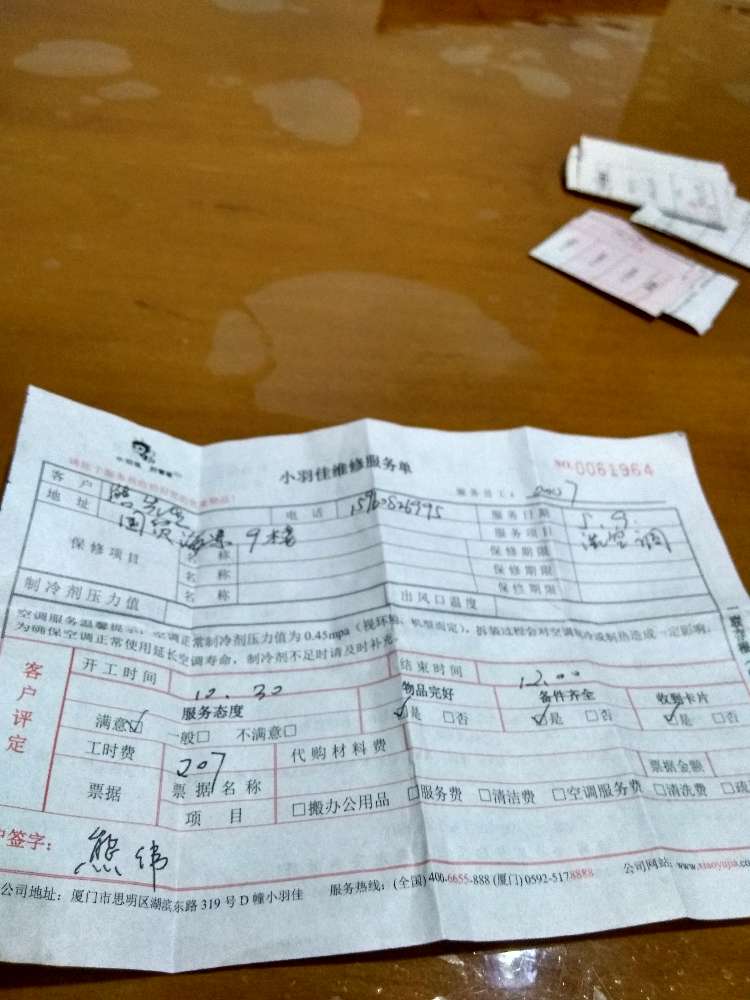 小羽佳维修服务单
NO.0061964
客户
电话
服务员工:
服务日期 5.9.
地址 9楼
服务项目 洗空调
保修项目 名称 保修期限
名称 保修期限
名称 保修期限
制冷剂压力值 出风口温度
空调服务温馨提示:空调正常制冷剂压力值为0.45mpa(视环境、机型而定),拆装过程会对空调制冷或制热造成一定影响,
为确保空调正常使用延长空调寿命,制冷剂不足时请及时补充。
客户评定
开工时间 10.30 结束时间 12.00
服务态度 物品完好 备件齐全 收到卡片
满意☑ 一般□ 不满意□ ☑是 □否 ☑是 □否 ☑是 □否
工时费 207 代购材料费
票据 票据名称 票据金额
项目 □搬办公用品 □服务费 □清洁费 □空调服务费 □清洗费
户签字: 熊伟
公司地址:厦门市思明区湖滨东路319号D幢小羽佳 服务热线:(全国)400-6655-888 (厦门)0592-5178888 公司网站:www.xiaoyujia.co